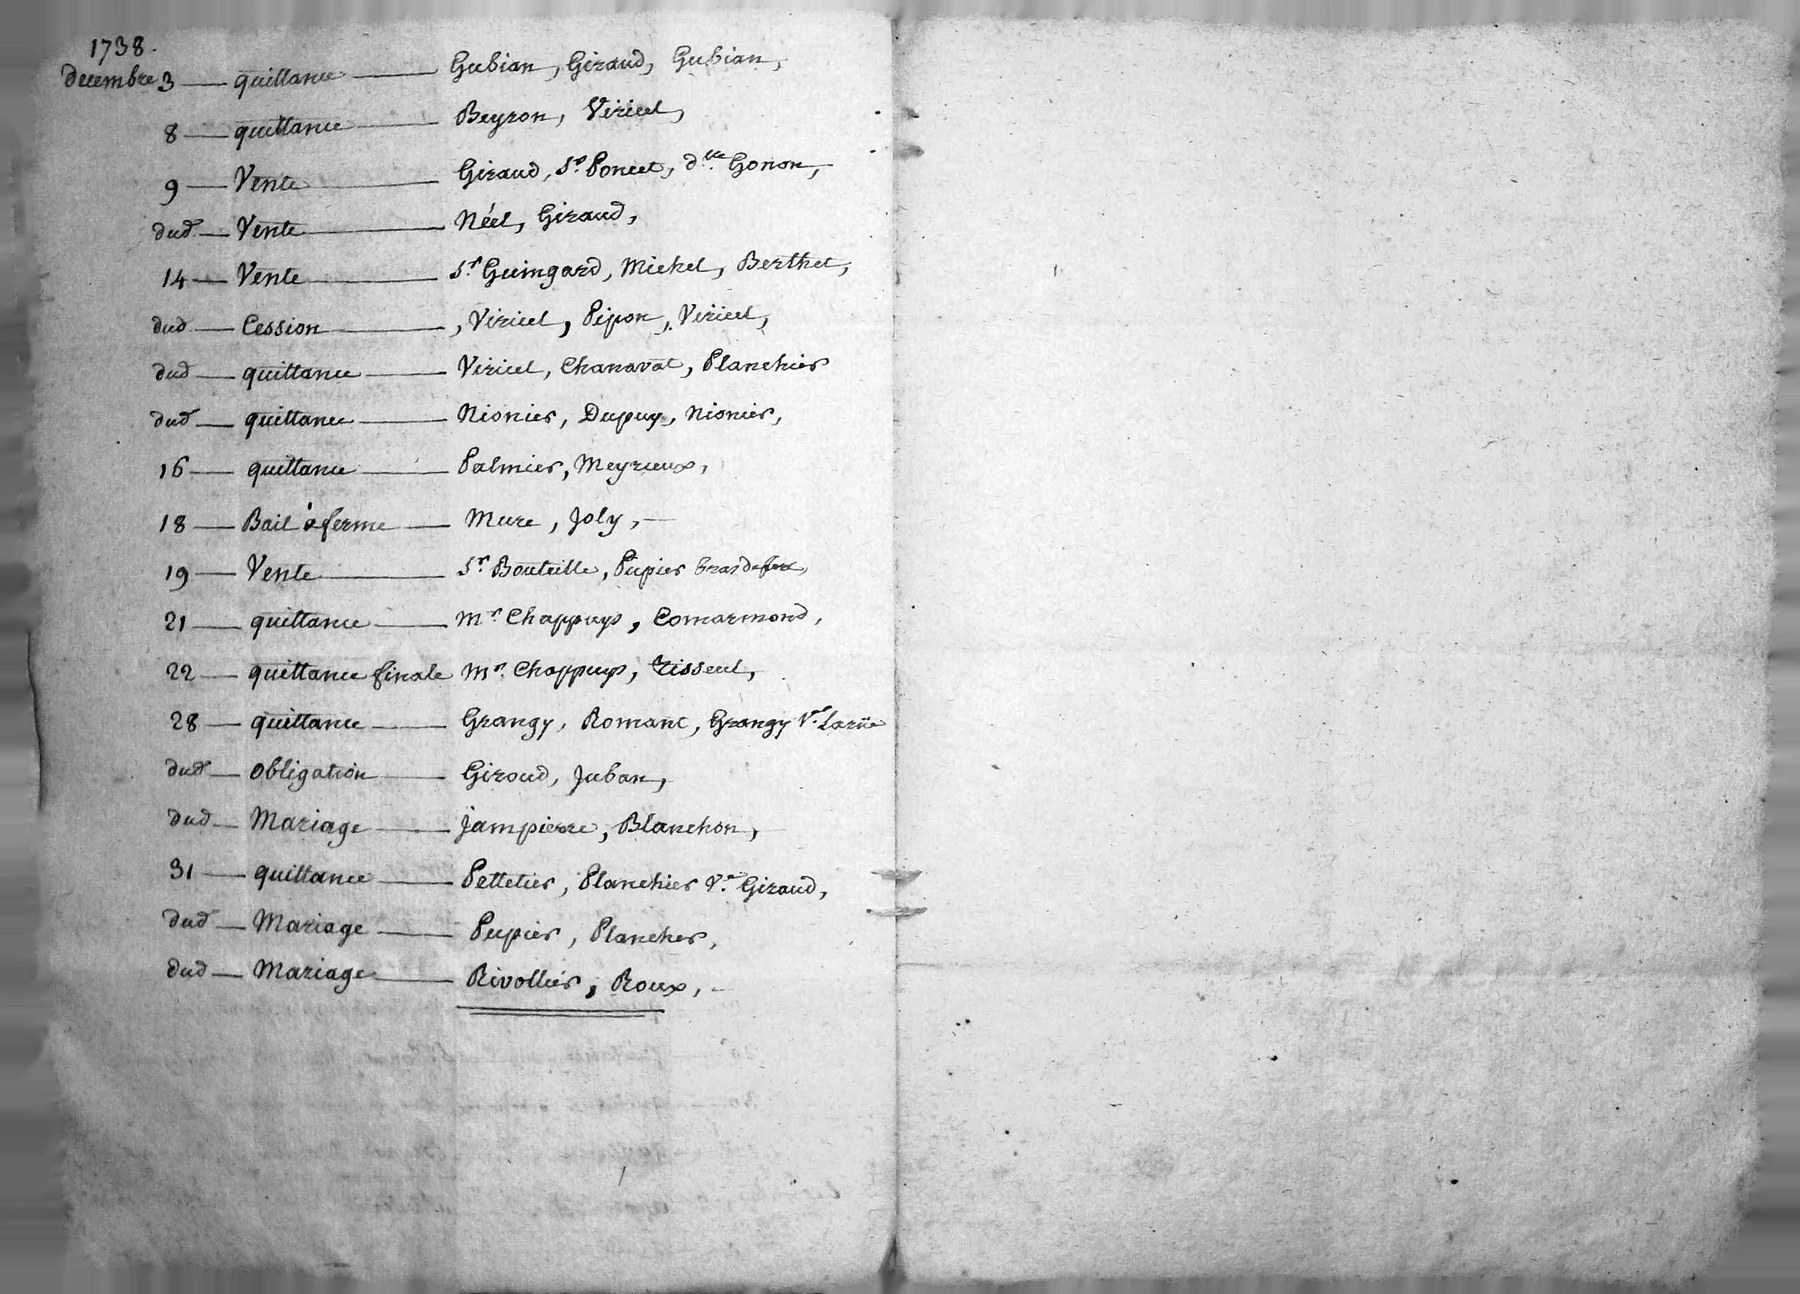 1738.
decembre 3 — quittance — Gubian, Giraud, Gubian,
8 — quittance — Beyron, Viricel,
9 — Vente — Giraud, Sr. Poncet, dlle. Gonon,
dud — Vente — Néel, Giraud,
14 — Vente — Sr. Guingard, Michel, Berthet,
dud — Cession — , Viricel, Pipon, Viricel,
dud — quittance — Viricel, Chanavat, Planchier
dud — quittance — Nionier, Dupuy, Nionier,
16 — quittance — Palmier, Meyrieux,
18 — Bail à ferme — Mure, Joly, —
19 — Vente — Sr Bouteille, Pupier bras de fer,
21 — quittance — Mr. Chappuys, Comarmond,
22 — quittance finale Mr. Chappuys, Tisseul,
28 — quittance — Grangy, Romant, Grangy Ve. Larüe
dud — obligation — Giroud, Juban,
dud — Mariage — Jampierre, Blanchon,
31 — quittance — Pelletier, Planchier Ve. Giraud,
dud — Mariage — Pupier, Plancher,
dud — Mariage — Rivollier, Roux, —